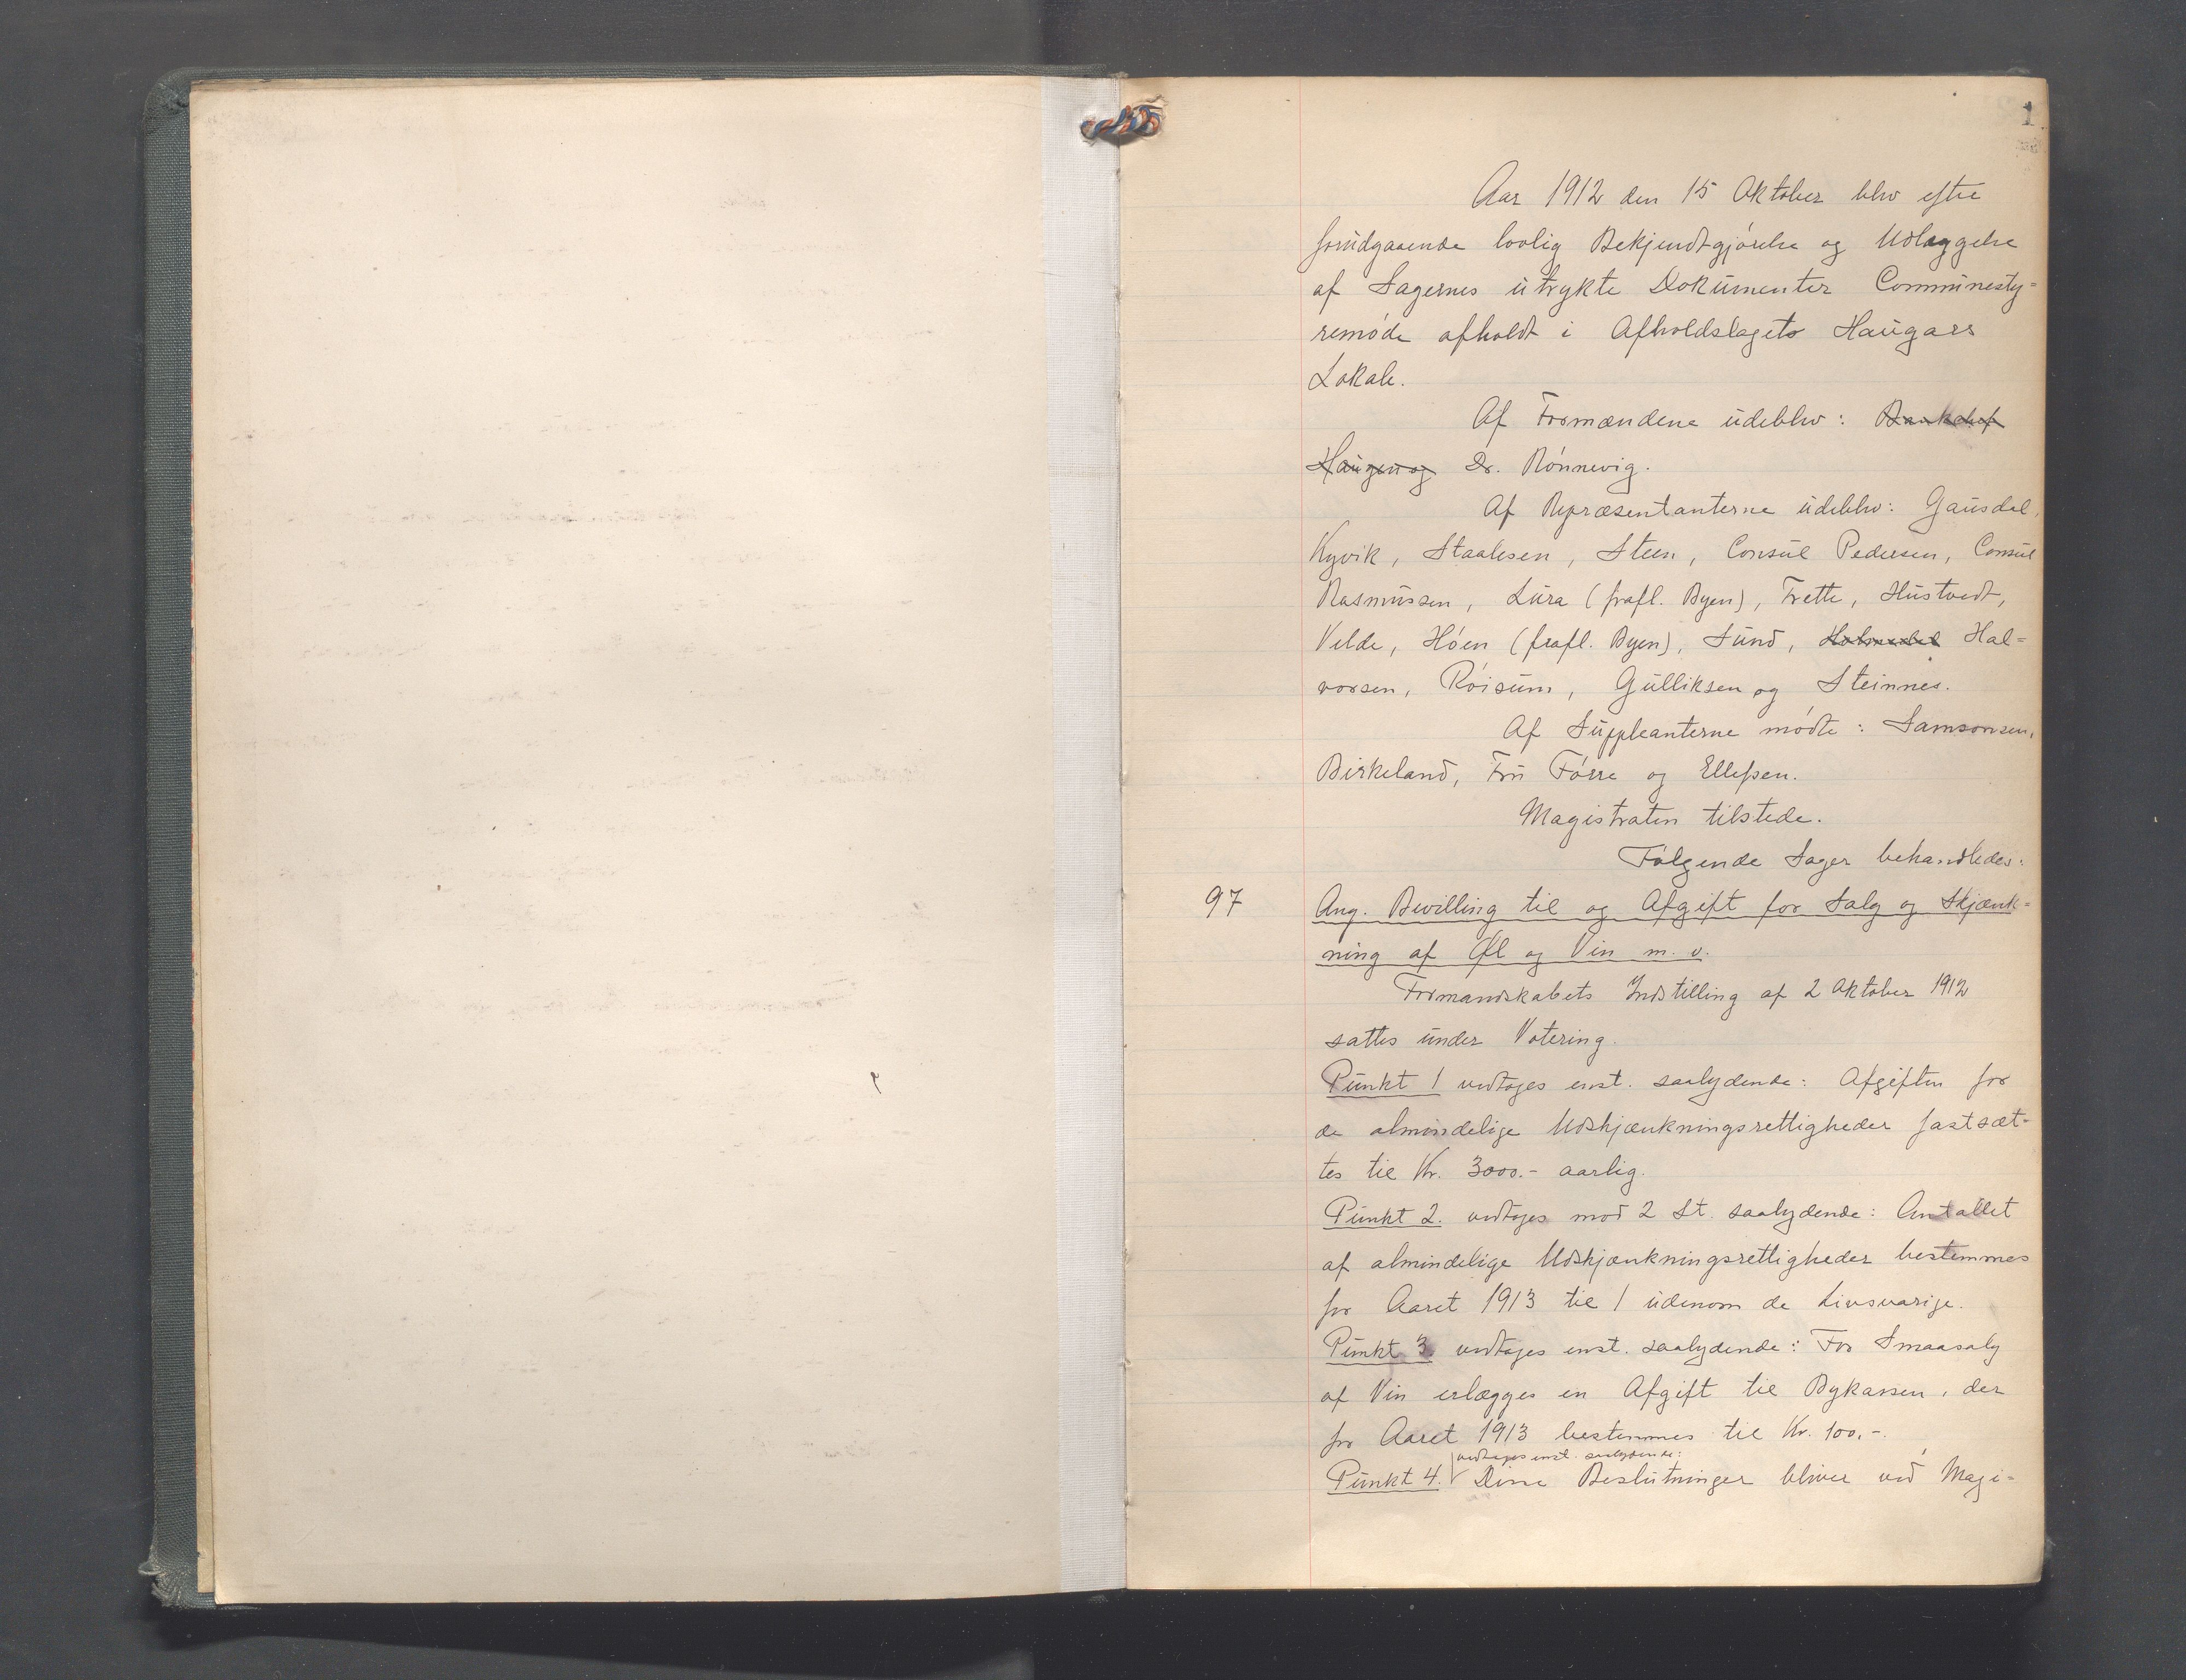 1
Aar 1912 den 15 Oktober blev efter
forudgaaende lovlig Bekjendtgjórelse og Udlæggelse
af Sagernes utrykte Dokumenter Communesty=
remóde afholdt i Afholdslagets Haugars
Lokale.
Af Formændene udeblev: Bankchef
Haugen og Dr. Rónnevig.
Af Repræsentanterne udeblev: Gausdal,
Kyvik, Staalesen, Steen, Consul Pedersen, Consul
Rasmussen, Lura (frafl. Byen), Trette, Hustvedt,
Velde, Hóen (frafl. Byen), Sund, Hal=
vorsen, Róisum, Gulliksen og Steinnes.
Af Suppleanterne módte: Samsonsen,
Birkeland, Fru Fórre og Ellefsen.
Magistraten tilstede.
Fólgende Sager behandledes:
97 Ang. Bevilling til og Afgift for Salg og Skjænk=
ning af Øl og Vin m. v.
Formandskabets Indstilling af 2 Oktober 1912
sattes under Votering.
Punkt 1 vedtoges enst. saalydende: Afgiften for
de almindelige Udskjænkningsrettigheder fastsæt-
tes til Kr. 3000.- aarlig.
Punkt 2. vedtoges mod 2 St. saalydende: Antallet
af almindelige Udskjænkningsrettigheder bestemmes
for Aaret 1913 til 1 udenom de Livsvarige.
Punkt 3. vedtoges enst. saalydende: For Smaasalg
af Vin erlægges en Afgift til Bykassen, der
for Aaret 1913 bestemmes til Kr. 100.-.
vedtoges enst. saalydende:
Punkt 4. Disse Beslutninger bliver ved Magi=